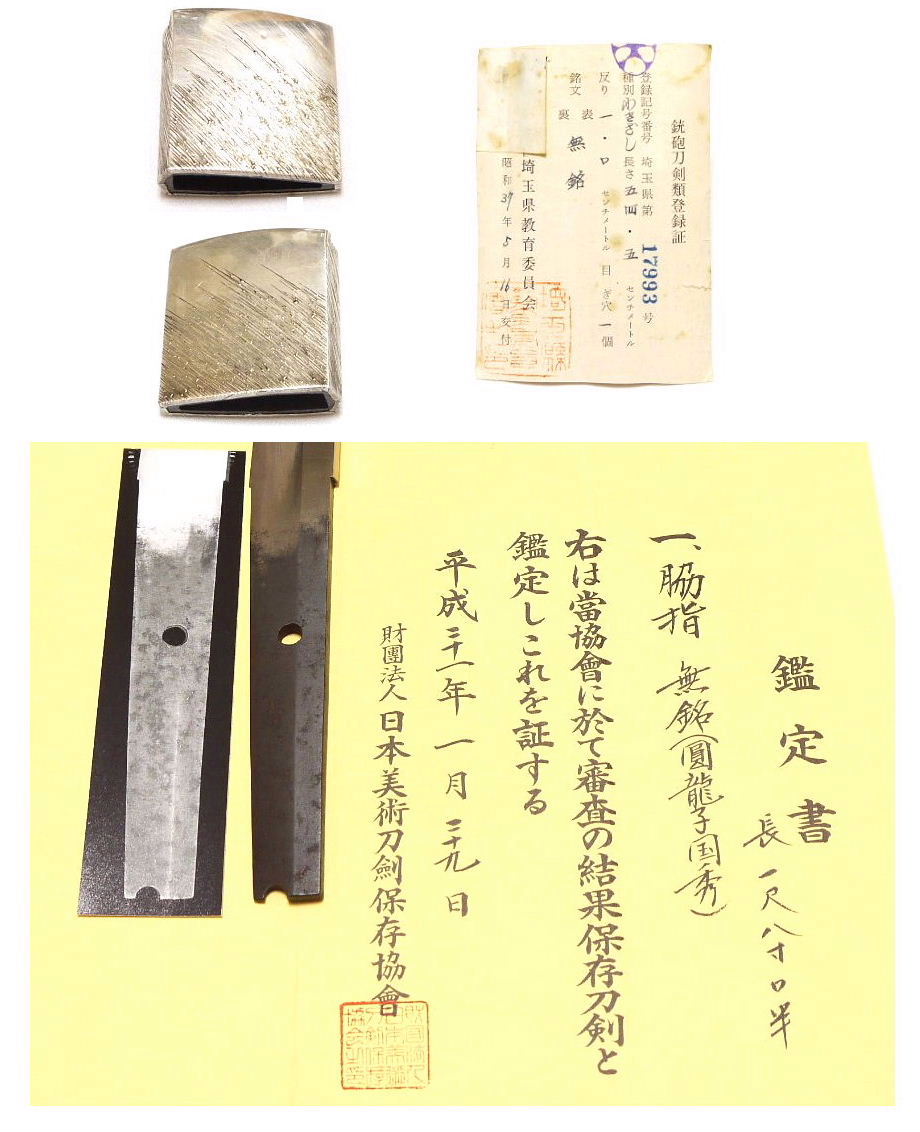 銃砲刀剣類登録証
登録記号番号 埼玉県第 17993 号
種別 わきざし 長さ 五四・五 センチメートル
反り 一・〇 センチメートル 目くぎ穴 一個
銘文 表 無銘
裏
埼玉県教育委員会
昭和39年5月16日交付
鑑定書
長一尺八寸〇半
一、脇指 無銘(圓龍子国秀)
右は當協會に於て審査の結果保存刀剣と
鑑定しこれを証する
平成二十一年一月二十九日
財團法人日本美術刀劍保存協會